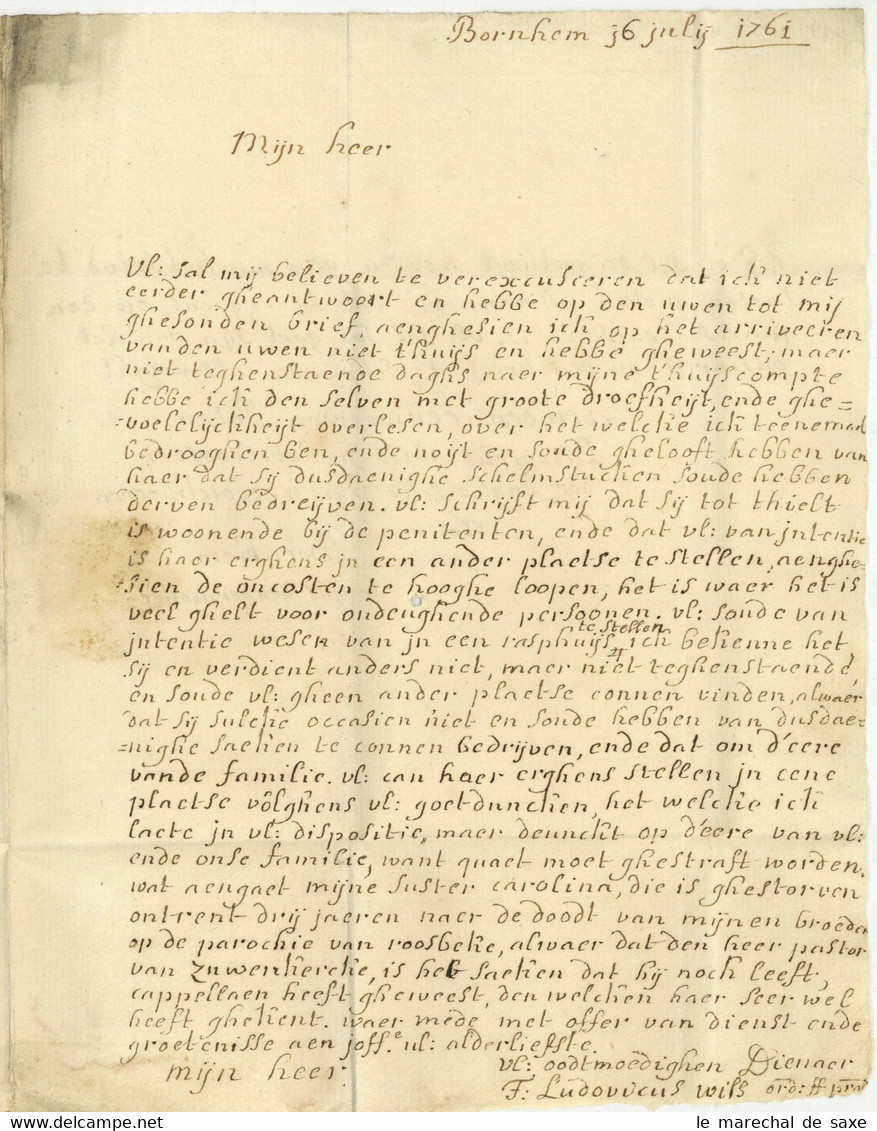 Bornhem j6 julij 1761
Mijn heer
Vl: sal mij believen te verexcusceren dat ick niet
eerder gheantwoort en hebbe op den uwen tot mij
ghesonden brief, aenghesien ick op het arriveeren
vanden uwen niet t'huijs en hebbe gheweest, maer
niet teghenstaende daghs naer mijne t'huijscompte
hebbe ick den selven met groote droefheijt, ende ghe=
=voelelijckheijt overlesen, over het welcke ick teenemael
bedrooghen ben, ende noijt en soude ghelooft hebben van
haer dat sij dusdaenighe schelmstucken soude hebben
derven bedreijven. vl: schrijft mij dat sij tot thielt
is woonende bij de penitenten, ende dat vl: van jntentie
is haer erghens jn een ander plaetse te stellen, aenghe=
=sien de oncosten te hooghe loopen, het is waer het is
veel ghelt voor ondeughende persoonen. vl: soude van
jntentie wesen van jn een rasphuijs te stellen ick bekenne het
sij en verdient anders niet, maer niet teghenstaende
en soude vl: gheen ander plaetse connen vinden, alwaer
dat sij sulcke occasien niet en soude hebben van dusdae=
=nighe saeken te connen bedrijven, ende dat om d'eere
vande familie. vl: can haer erghens stellen jn eene
plaetse volghens vl: goetduncken, het welcke ick
laete jn vl: dispositie, maer deunckt op d'eere van vl:
ende onse familie, want quaet moet ghestraft worden.
wat aengaet mijne suster carolina, die is ghestorven
ontrent drij jaeren naer de doodt van mijnen broeder
op de parochie van roosbeke, alwaer dat den heer pastor
van zuwenkercke, is het saeken dat hij noch leeft,
cappellaen heeft gheweest, den welcken haer seer wel
heeft ghekent. waer mede met offer van dienst ende
groetenisse aen joff.e vl: alderliefste.
mijn heer. vl: oodtmoedighen Dienaer
F: Ludovvcus wils ord: ff præd
le marechal de saxe